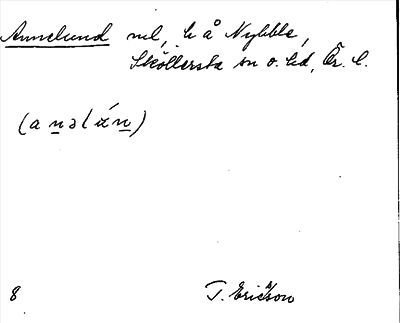 Annelund nel, h å Nybble,
Sköllersta sn o. hd, Ör. l.
(a n ə l
8 T. Ericson